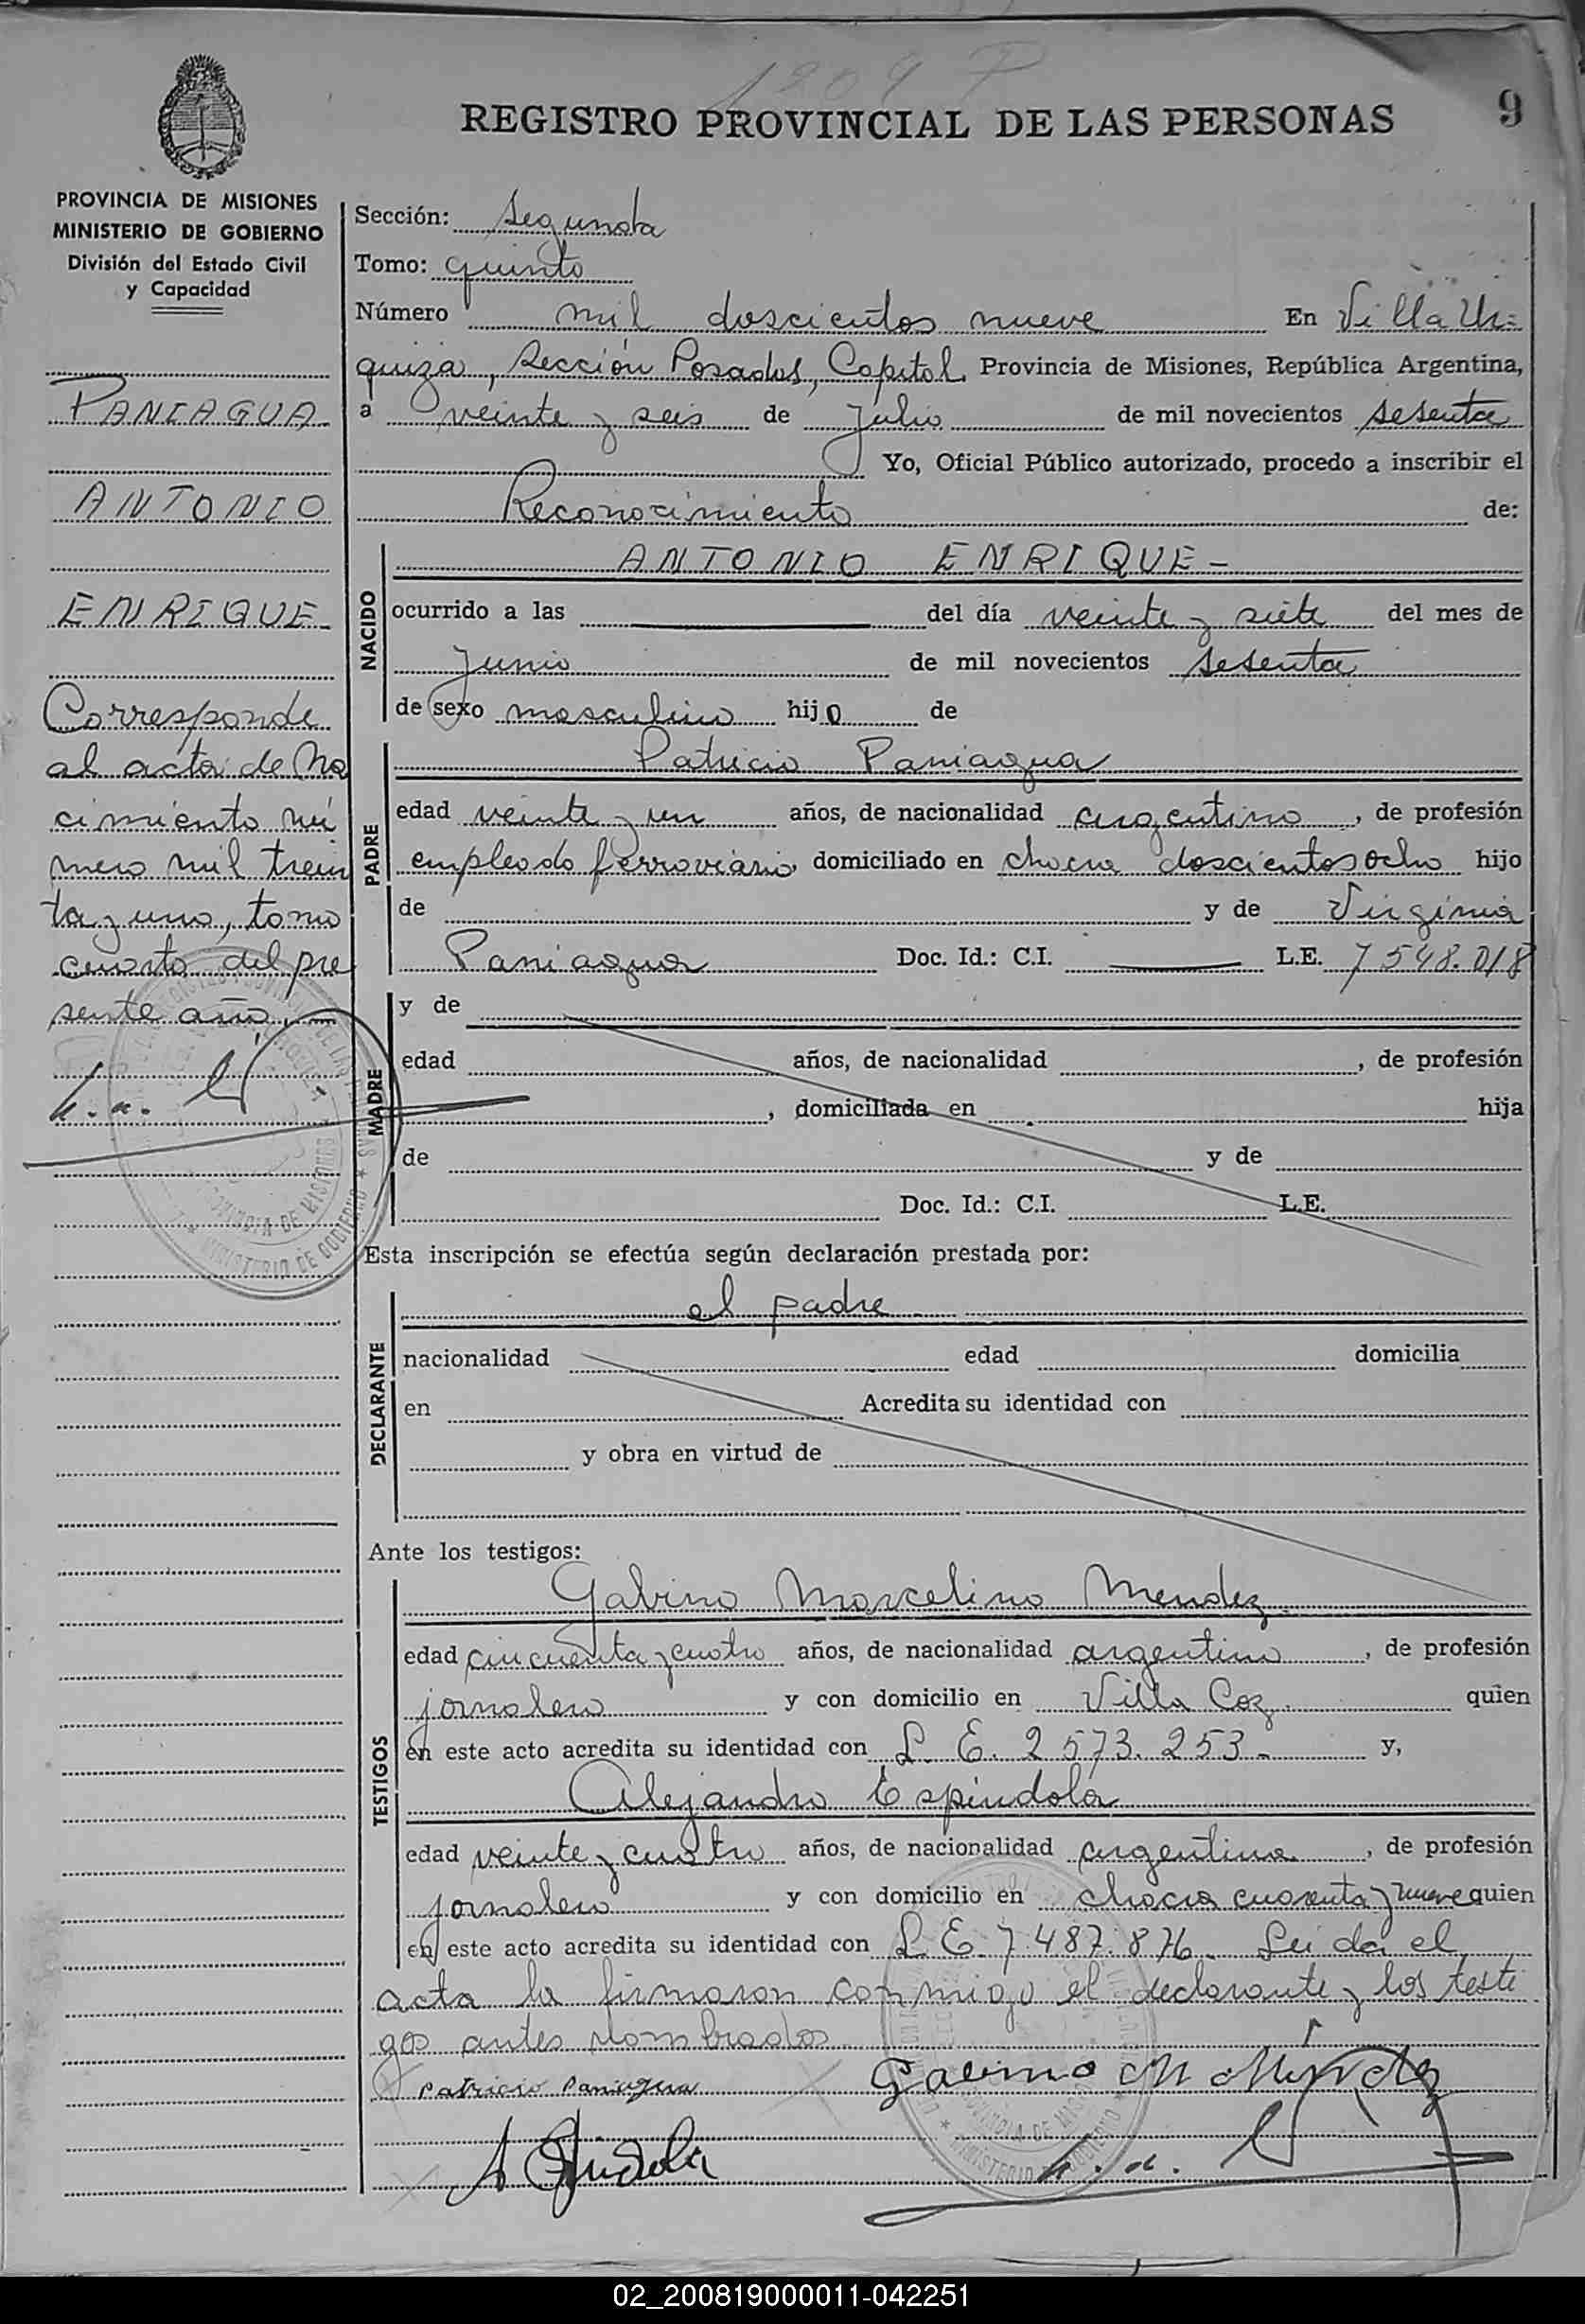 1209 P
REGISTRO PROVINCIAL DE LAS PERSONAS
9
PROVINCIA DE MISIONES
MINISTERIO DE GOBIERNO
División del Estado Civil
y Capacidad
PANIAGUA
ANTONIO
ENRIQUE-
Corresponde
al acta de Na
cimiento nú
mero mil trein
ta y uno, tomo
cuarto del pre
sente año,
Sección: Segunda
Tomo: quinto
Número mil doscientos nueve En Villa Ur=
quiza, Sección Posadas, Capital, Provincia de Misiones, República Argentina,
a veinte y seis de Julio de mil novecientos sesenta
Yo, Oficial Público autorizado, procedo a inscribir el
Reconocimiento de:
NACIDO
ANTONIO ENRIQUE-
ocurrido a las del día veinte y siete del mes de
Junio de mil novecientos sesenta
de sexo masculino hijo de
PADRE
Patricio Paniagua
edad veinte y un años, de nacionalidad argentino, de profesión
empleado ferroviario, domiciliado en chacra doscientos ocho hijo
de y de Virginia
Paniagua Doc. Id.: C.I. L.E. 7548.018
MADRE
y de
edad años, de nacionalidad , de profesión
, domiciliada en hija
de y de
Doc. Id.: C.I. L.E.
Esta inscripción se efectúa según declaración prestada por:
DECLARANTE
el padre
nacionalidad edad domicilia
en Acredita su identidad con
y obra en virtud de
Ante los testigos:
TESTIGOS
Gabino Marcelino Mendez
edad cincuenta y cuatro años, de nacionalidad argentino, de profesión
jornalero y con domicilio en Villa Coz quien
en este acto acredita su identidad con L. E. 2573.253- y,
Alejandro Espíndola
edad veinte y cuatro años, de nacionalidad argentina, de profesión
jornalero y con domicilio en chacra cuarenta y nueve quien
en este acto acredita su identidad con L E 7.487.876- Leida el
acta la firmaron conmigo el declarante y los testi
gos antes nombrados
Patricio Paniagua
Gabino M Méndez
A Espíndola
MINISTERIO DE GOBIERNO
PROVINCIA DE MISIONES
02_200819000011-042251